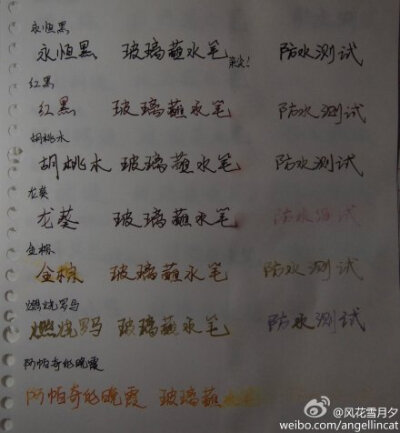 永恒黑
永恒黑 玻璃蘸水笔 防水测试
红黑
红黑 玻璃蘸水笔 防水测试
胡桃木
胡桃木 玻璃蘸水笔 防水测试
龙葵
龙葵 玻璃蘸水笔 防水测试
金棕
金棕 玻璃蘸水笔 防水测试
燃烧罗马
燃烧罗马 玻璃蘸水笔 防水测试
阿帕奇的晚霞
阿帕奇的晚霞 玻璃蘸水笔
@风花雪月夕
weibo.com/angellincat